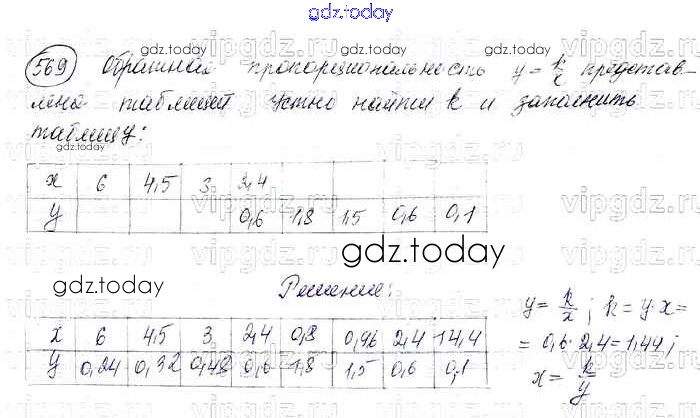 gdz.today
569 Обратная пропорциональность y = k/x представ-
лена таблицей Устно найти k и заполнить
таблицу:
x 6 4,5 3 2,4
y 0,6 1,8 1,5 0,6 0,1
gdz.today
gdz.today
Решение:
x 6 4,5 3 2,4 0,8 0,96 2,4 14,4
y 0,24 0,32 0,48 0,6 1,8 1,5 0,6 0,1
y = k/x ; k = y·x =
= 0,6·2,4 = 1,44 ;
x = k/y